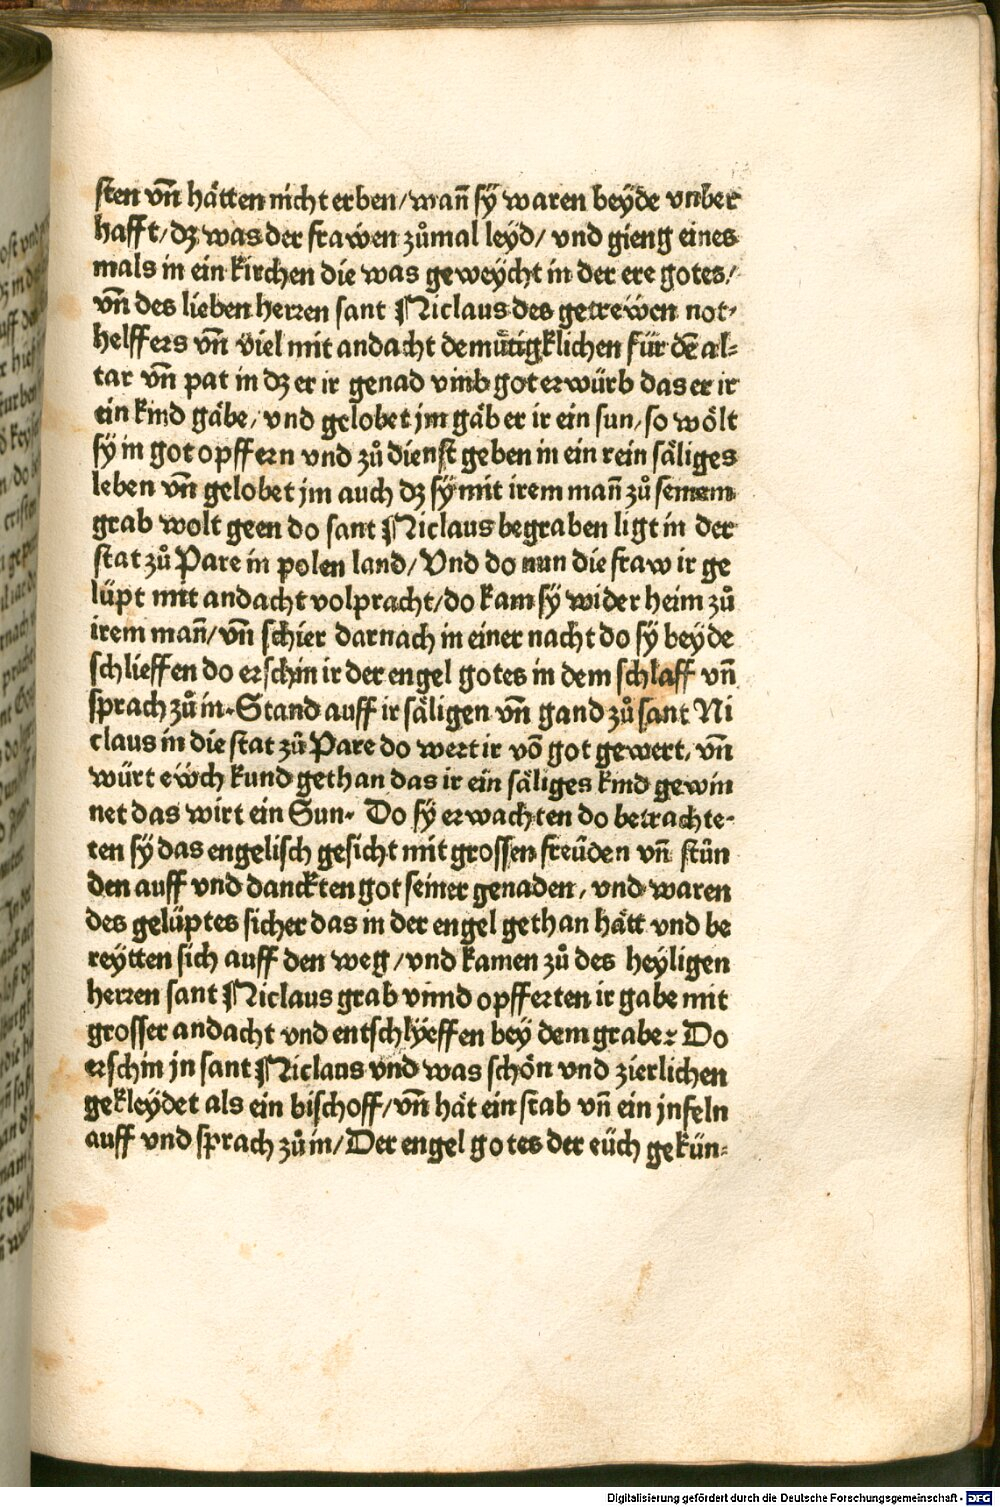 sten vn̄ hätten nicht erben/wañ sÿ waren beÿde vnber
hafft/dʒ was der frawen zůmal leÿd/ vnd gieng eines
mals in ein kirchen die was geweÿcht in der ere gotes/
vn̄ des lieben herren sant Niclaus des getreẅen not⸗
helffers vn̄ viel mit andacht demütigklichen für dē al⸗
tar vn̄ pat in dʒ er ir genad vmb got erwürb das er ir
ein kind gäbe/ vnd gelobet jm gäb er ir ein sun/ so wölt
sÿ in got opffern vnd zů dienst geben in ein rein säliges
leben vn̄ gelobet jm auch dʒ sÿ mit irem mañ zů seinem
grab wolt geen do sant Niclaus begraben ligt in der
stat zů Pare in polen land/ Vnd do nun die fraw ir ge
lüpt mit andacht volpracht/do kam sÿ wider heim zů
irem mañ/ vn̄ schier darnach in einer nacht do sÿ beÿde
schlieffen do erschin ir der engel gotes in dem schlaff vn̄
sprach zů in. Stand auff ir säligen vn̄ gand zů sant Ni
claus in die stat zů Pare do wert ir vō got gewert, vn̄
würt eẅch kund gethan das ir ein säliges kind gewin
net das wirt ein Sun. Do sÿ erwachten do betrachte⸗
ten sÿ das engelisch gesicht mit grossen freüden vn̄ stůn
den auff vnd danckten got seiner genaden, vnd waren
des gelüptes sicher das in der engel gethan hätt vnd be
reÿtten sich auff den weg /vnd kamen zů des heÿligen
herren sant Niclaus grab vnnd opfferten ir gabe mit
grosser andacht vnd entschlÿeffen beÿ dem grabe: Do
erschin jn sant Niclaus vnd was schön vnd zierlichen
gekleÿdet als ein bischoff/ vn̄ hät ein stab vn̄ ein jnfeln
auff vnd sprach zů in/ Der engel gotes der eüch gekün⸗
Digitalisierung gefördert durch die Deutsche Forschungsgemeinschaft - DFG